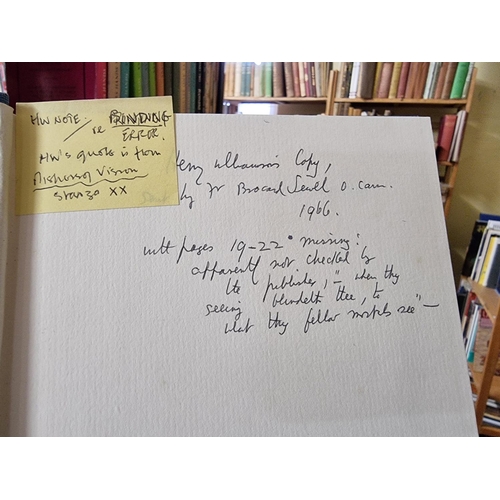 HW NOTE:
re BINDING
ERROR.
HW's quote is from
Mishors of Vision
stanza XX
Henry Williamson's Copy,
by Fr Brocard Sewell O. Carm.
1966.
with pages 19-22 missing:
apparently not checked by
the publisher, "— when thy
seeing blindeth thee, to
what thy fellow mortals see" —